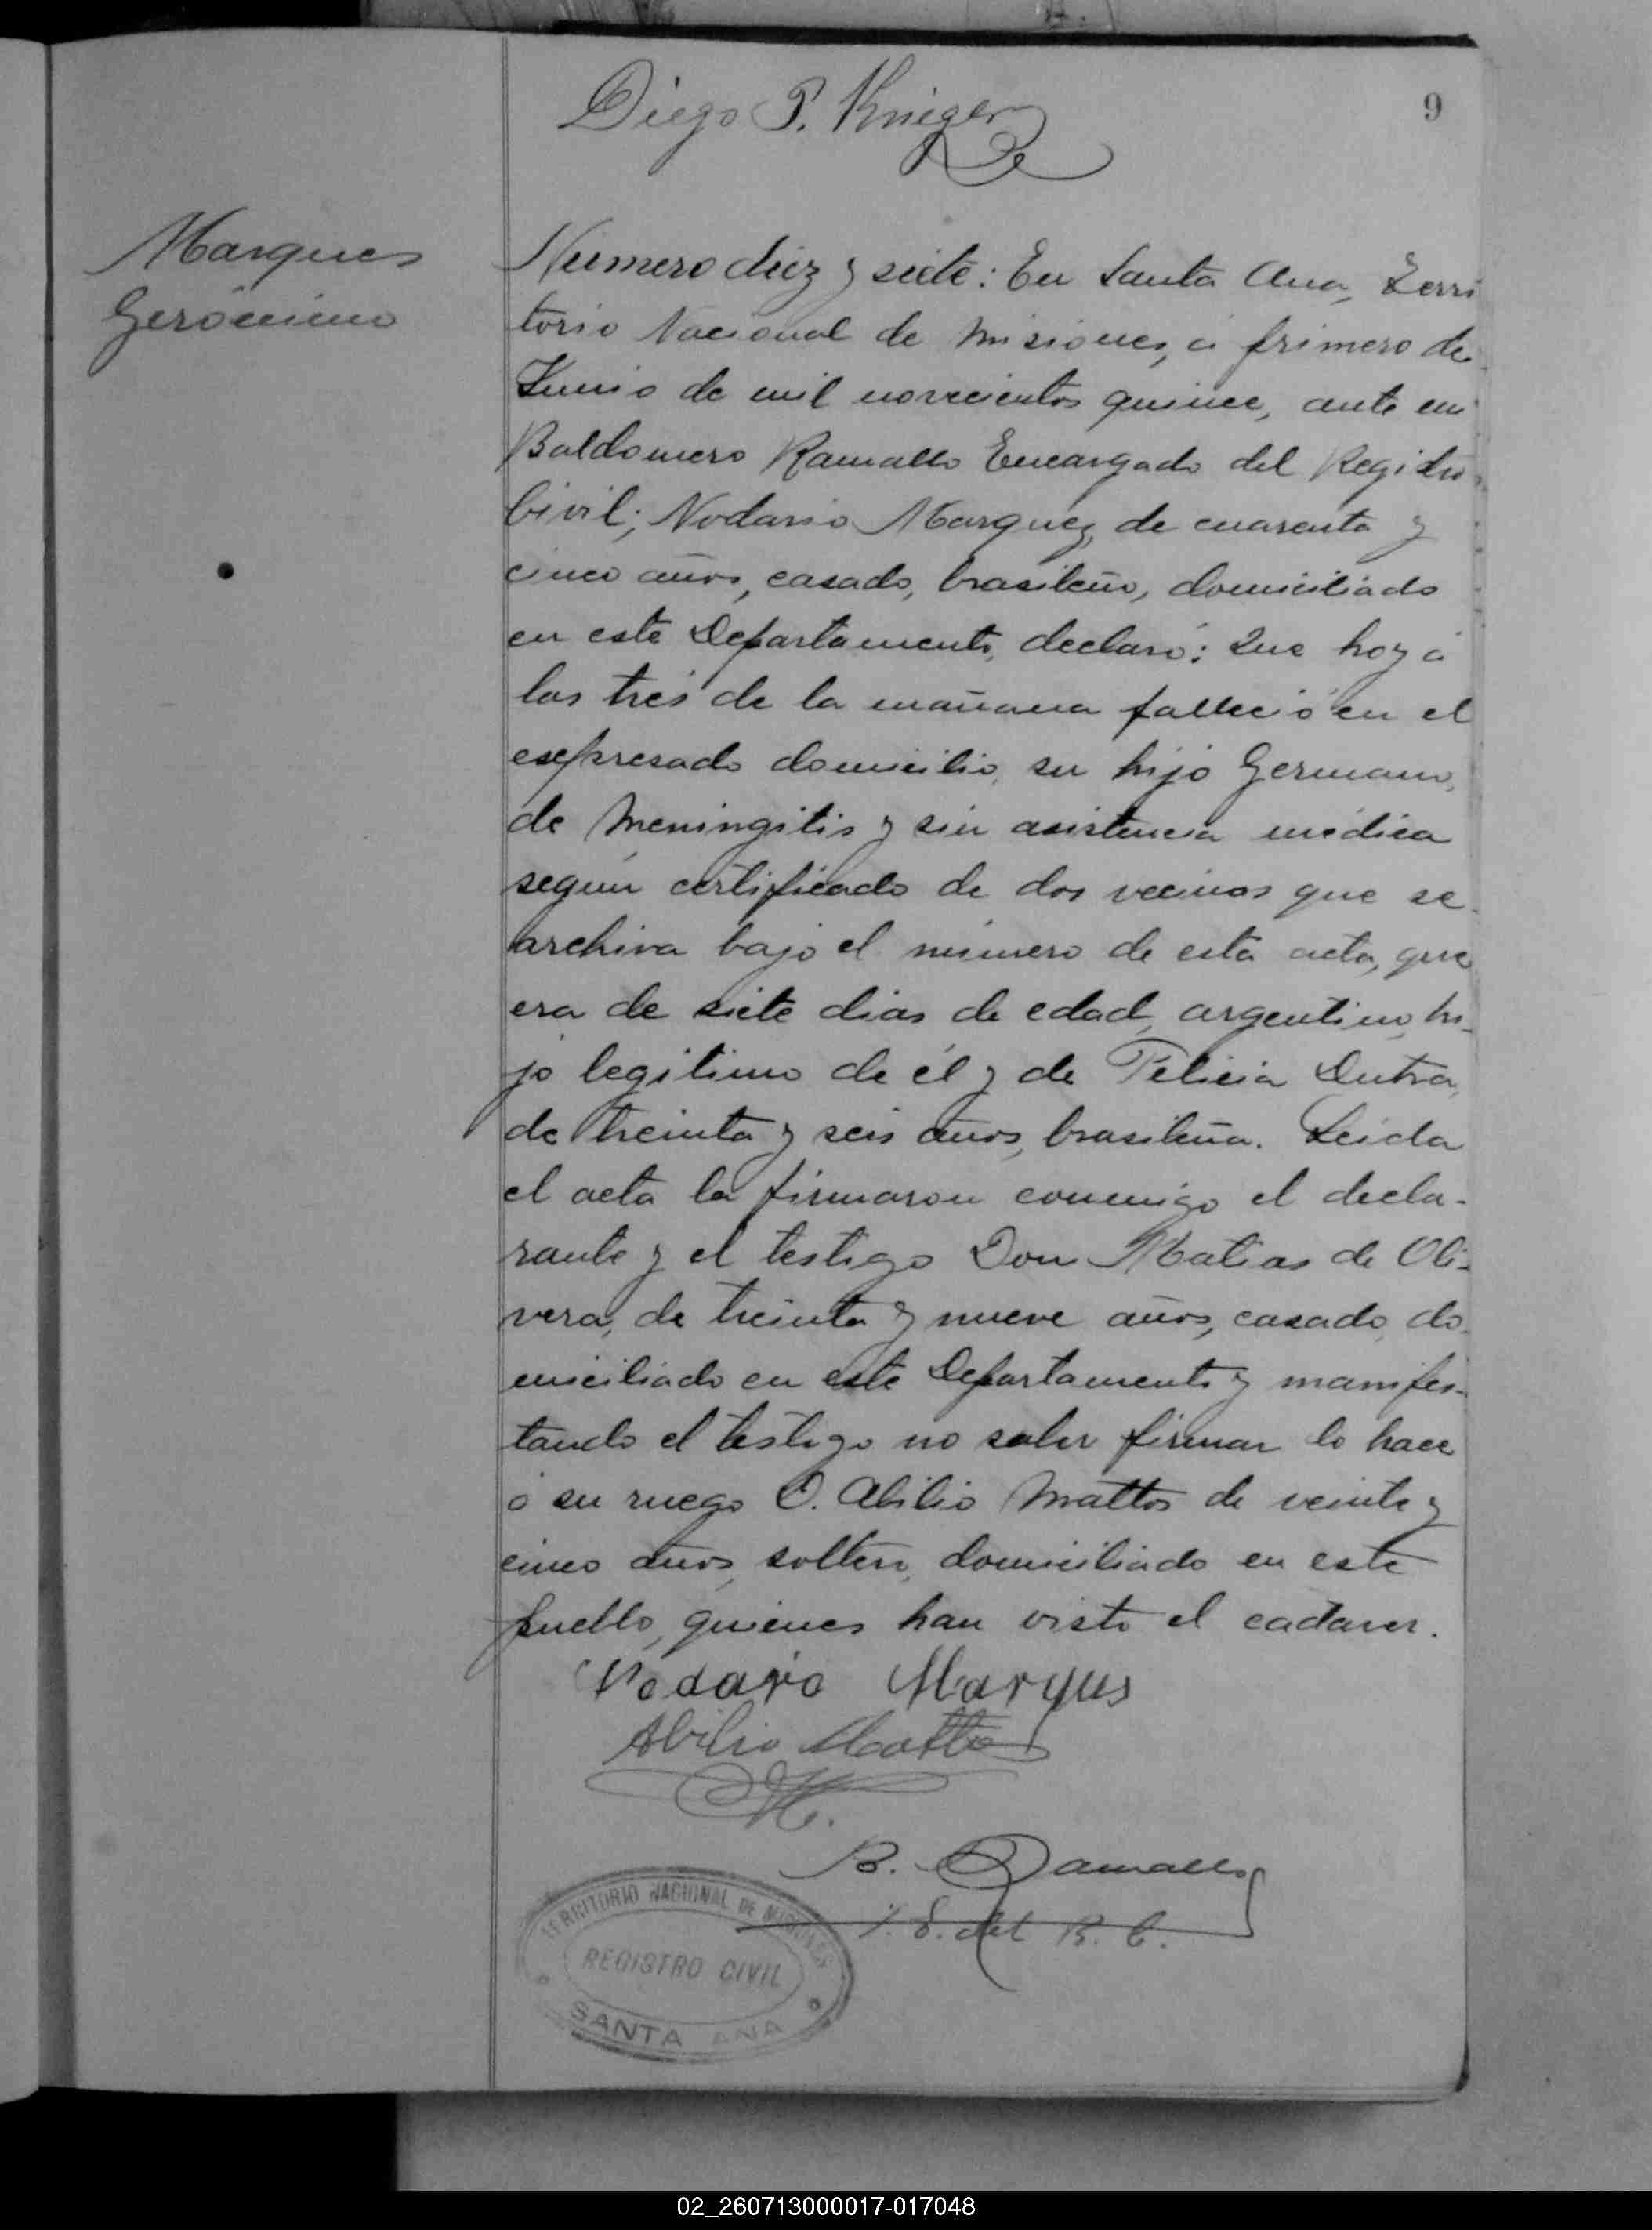 Diego P. Krieger
9
Marques
Gerónimo
Numero diez y siete: En Santa Ana, Terri
torio Nacional de Misiones, á primero de
Junio de mil novecientos quince, ante mi
Baldomero Ramallo Encargado del Registro
Civil; Nodario Marquez, de cuarenta y
cinco años, casado, brasileño, domiciliado
en este Departamento, declaró: Que hoy á
las tres de la mañana falleció en el
expresado domicilio, su hijo Germano,
de Meningitis y sin asistencia médica
según certificado de dos vecinos que se
archiva bajo el número de esta acta, que
era de siete dias de edad, argentino, hi-
jo legítimo de él y de Felicia Dutra,
de treinta y seis años, brasileña. Leida
el acta la firmaron conmigo el decla-
rante y el testigo Don Matias de Oli-
vera, de treinta y nueve años, casado, do
miciliado en este Departamento y manifes-
tando el testigo no saber firmar lo hace
á su ruego D. Abilio Mattos de veinte y
cinco años, soltero, domiciliado en este
pueblo, quienes han visto el cadaver.
Nodario Marques
Abilio Mattos
B. Ramallo
E. del R. C.
TERRITORIO NACIONAL DE MISIONES
REGISTRO CIVIL
SANTA ANA
02_260713000017-017048